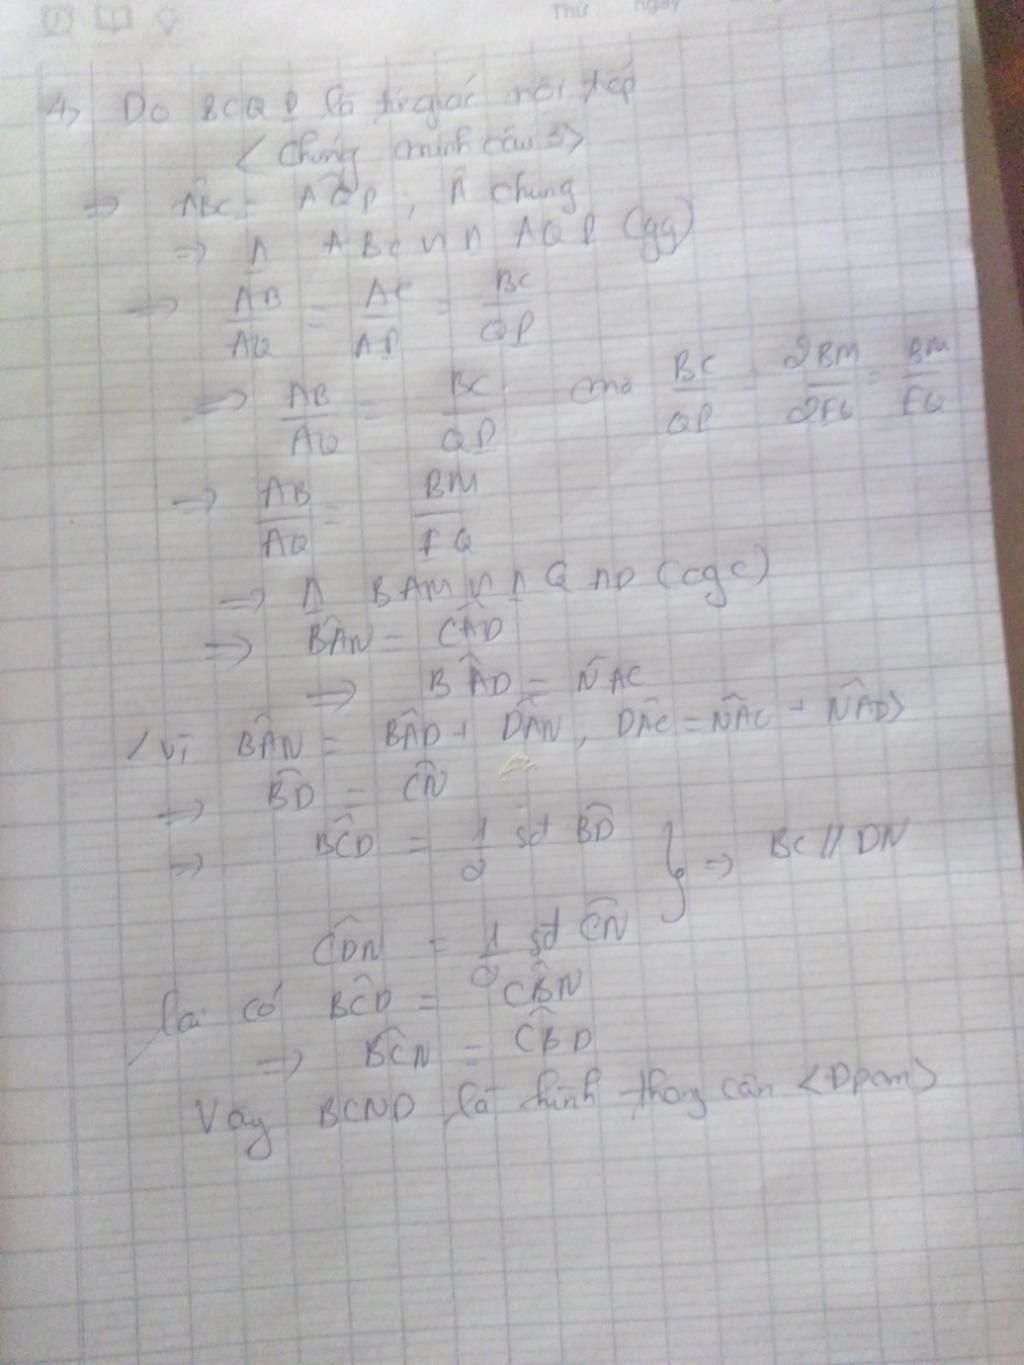 Thứ ngày
4, Do BCQP là tứ giác nội tiếp
< Chứng minh câu 3>
=> ABC = AQP, Â chung
=> Δ ABC ∽ Δ AQP (gg)
=> AB/AQ = AC/AP = BC/QP
=> AB/AQ = BC/QP mà BC/QP = 2BM/2IQ = BM/IQ
=> AB/AQ = BM/IQ
=> Δ BAM ∽ Δ QAD (cgc)
=> BÂN = CÂD
=> BÂD = NÂC
<vì BÂN = BÂD + DÂN, DÂC = NÂC + NÂD>
=> BD = CN
=> BĈD = 1/2 sđ BD
} => BC // DN
CDN = 1/2 sđ CN
lại có BĈD = CBN
=> BĈN = CBD
Vậy BCND là hình thang cân <Dpcm>